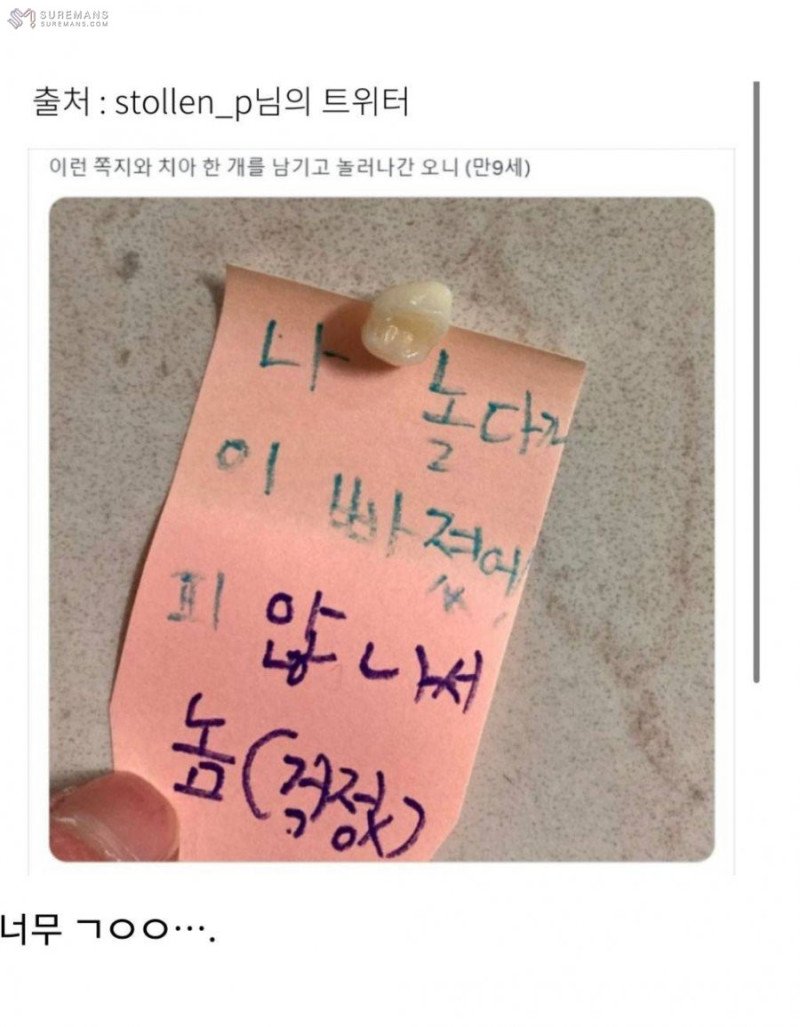 SUREMANS
SUREMANS.COM
출처 : stollen_p님의 트위터
이런 쪽지와 치아 한 개를 남기고 놀러나간 오니 (만9세)
나 놀다가
이 빠졌어
피 않 나서
놈(걱정X)
너무 ㄱㅇㅇ….